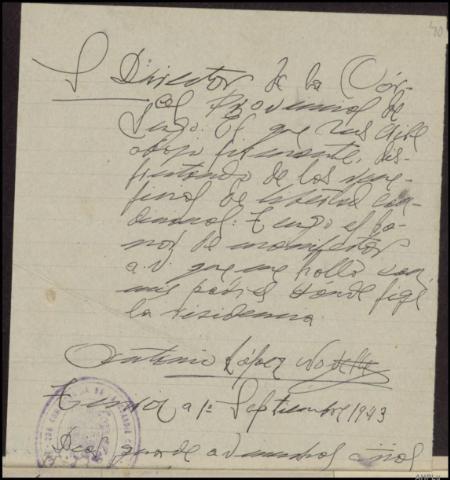 40
S Director de la Cár-
cel Provincial de
Lugo: El que suscribe
abajo firmante, dis-
frutando de los
de libertad con-
dicional: Tengo el ho-
nor de manifestar
a V que me hallo con
mis padres donde fijé
la residencia
Antonio López
a 1º Septiembre 1943
Dios guarde a V muchos años